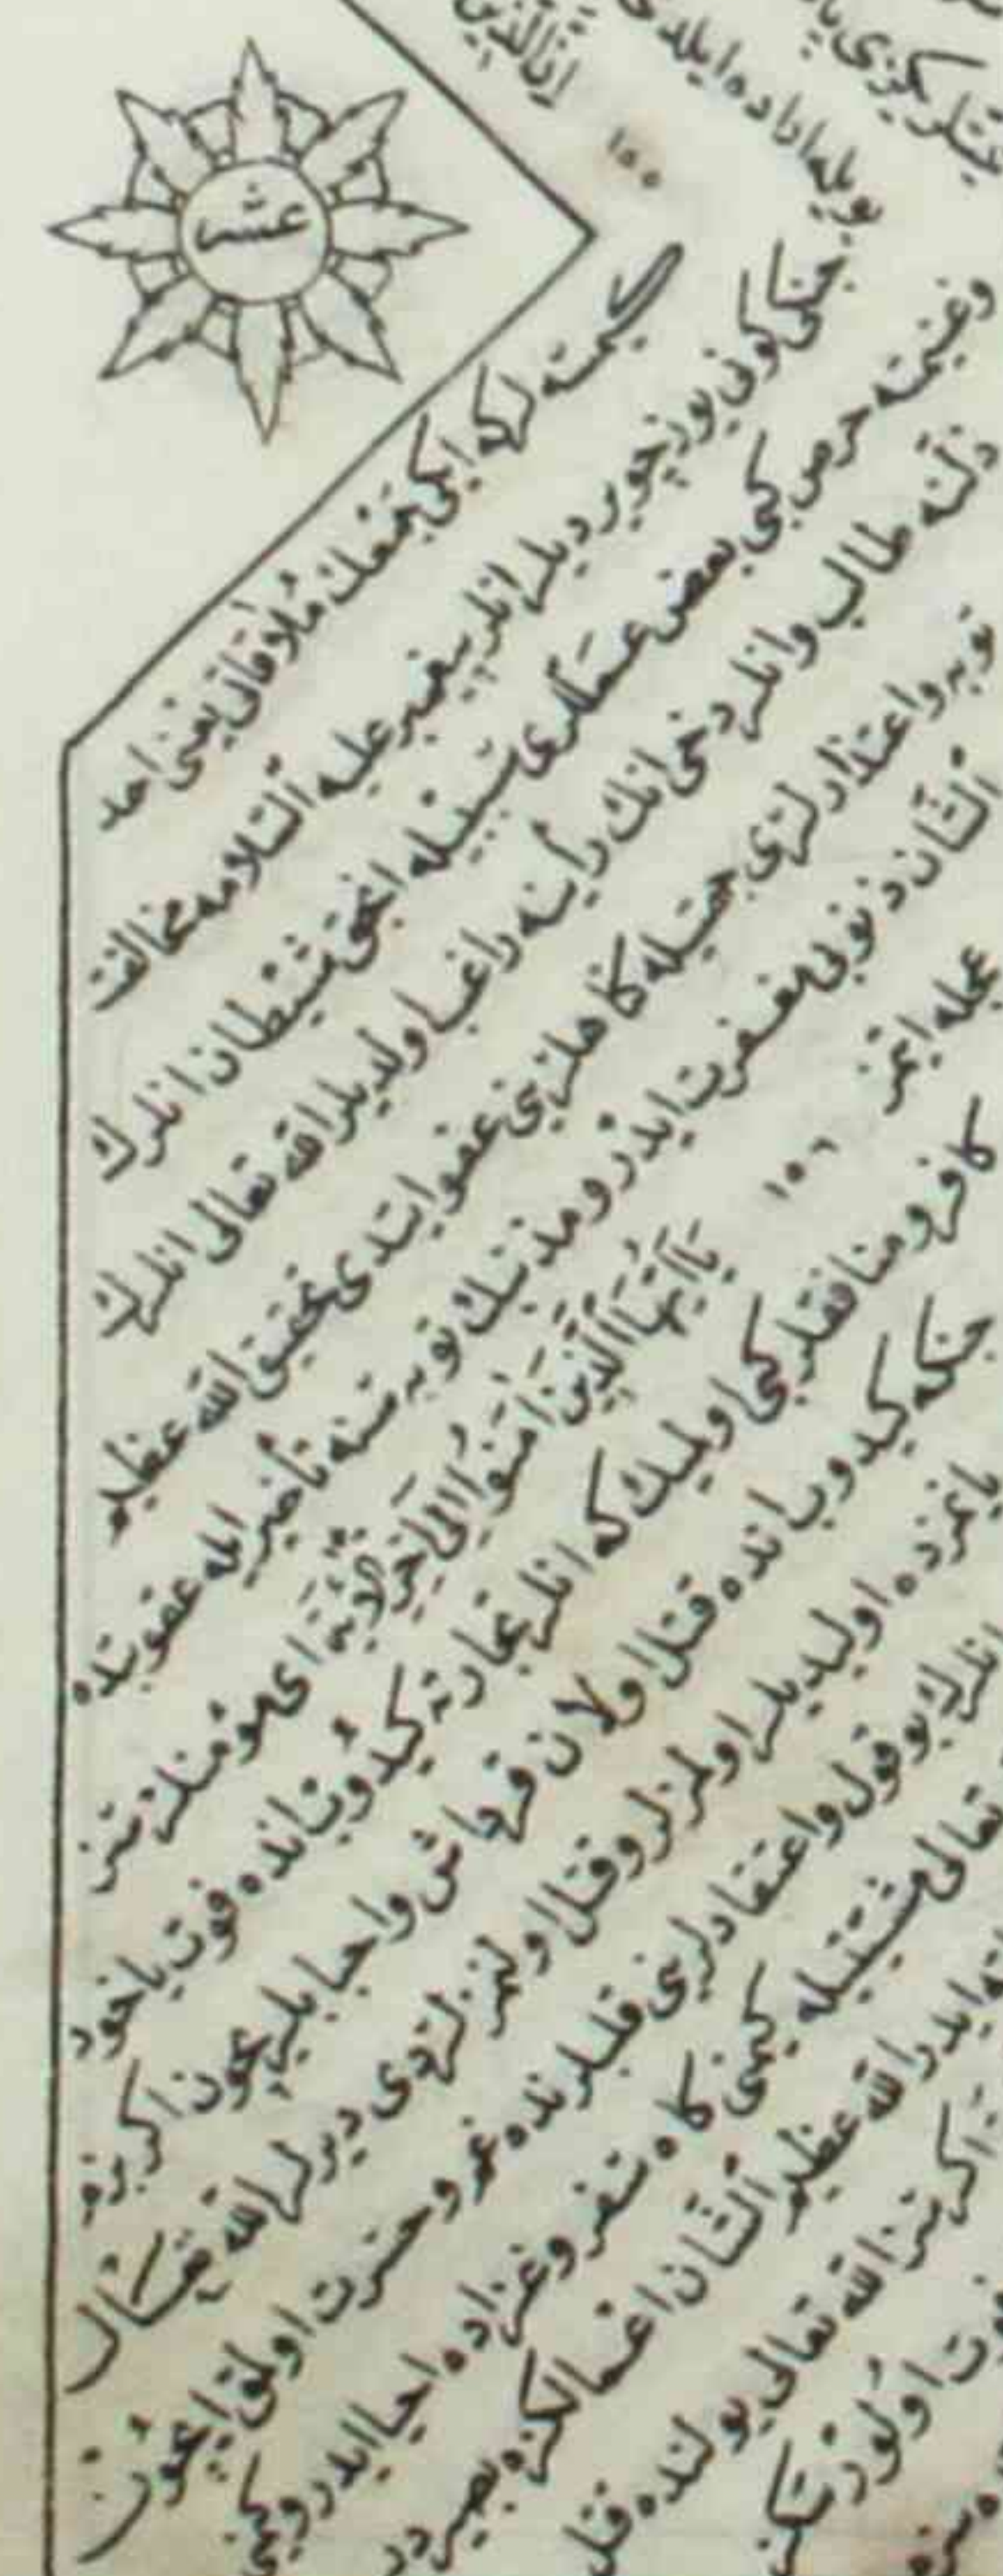 عشر
ان الذين
بويله اراده ايلدى
١٥٥
كيمسه لركه ايكى جمعك ملاقاتى يعنى احد
جنكى كونى يوز چويرديلر انلر پيغمبر عليه السلامه مخالفت
وغنيمته حرص كبى بعض عمللرى سببيله انجق شيطان انلرك
ذلتنه طالب وانلر دخى انك رأينه راغب اولديلر الله تعالى انلرك
توبه واعتذارلرى جهتيله كناهلرينى عفو ايتدى تحقيق الله عظيم
الشان ذنوبى مغفرت ايدر ومذنبك توبه سنه تأخير ايله عقوبتده
عجله ايتمز
١٥٦
يَا اَيُّهَا الَّذِينَ اٰمَنُوا اِلٰى اٰخِرِ الْاٰيَة اى مؤمنلر سز
كافر ومنافقلر كبى اولميك كه انلر تجارته كيدوب انده فوت ياخود
جنكه كيدوب انده قتل اولان قرداش واحبابلريچون اكر بزم
يانمزده اولايديلر اولمزلر وقتل اولنمزلردى ديرلر الله تعالى
انلرك بو قول واعتقادلرينى قلبلرنده غم وحسرت اولمق ايچون
تعالى مشيتيله كيمنى كاه سفر وغزاده احيا ايدر وكيمنى
ايدر الله عظيم الشان اعمالكزه بصيردر
اكر سز الله تعالى يولنده قتل
فوت اولورسكز